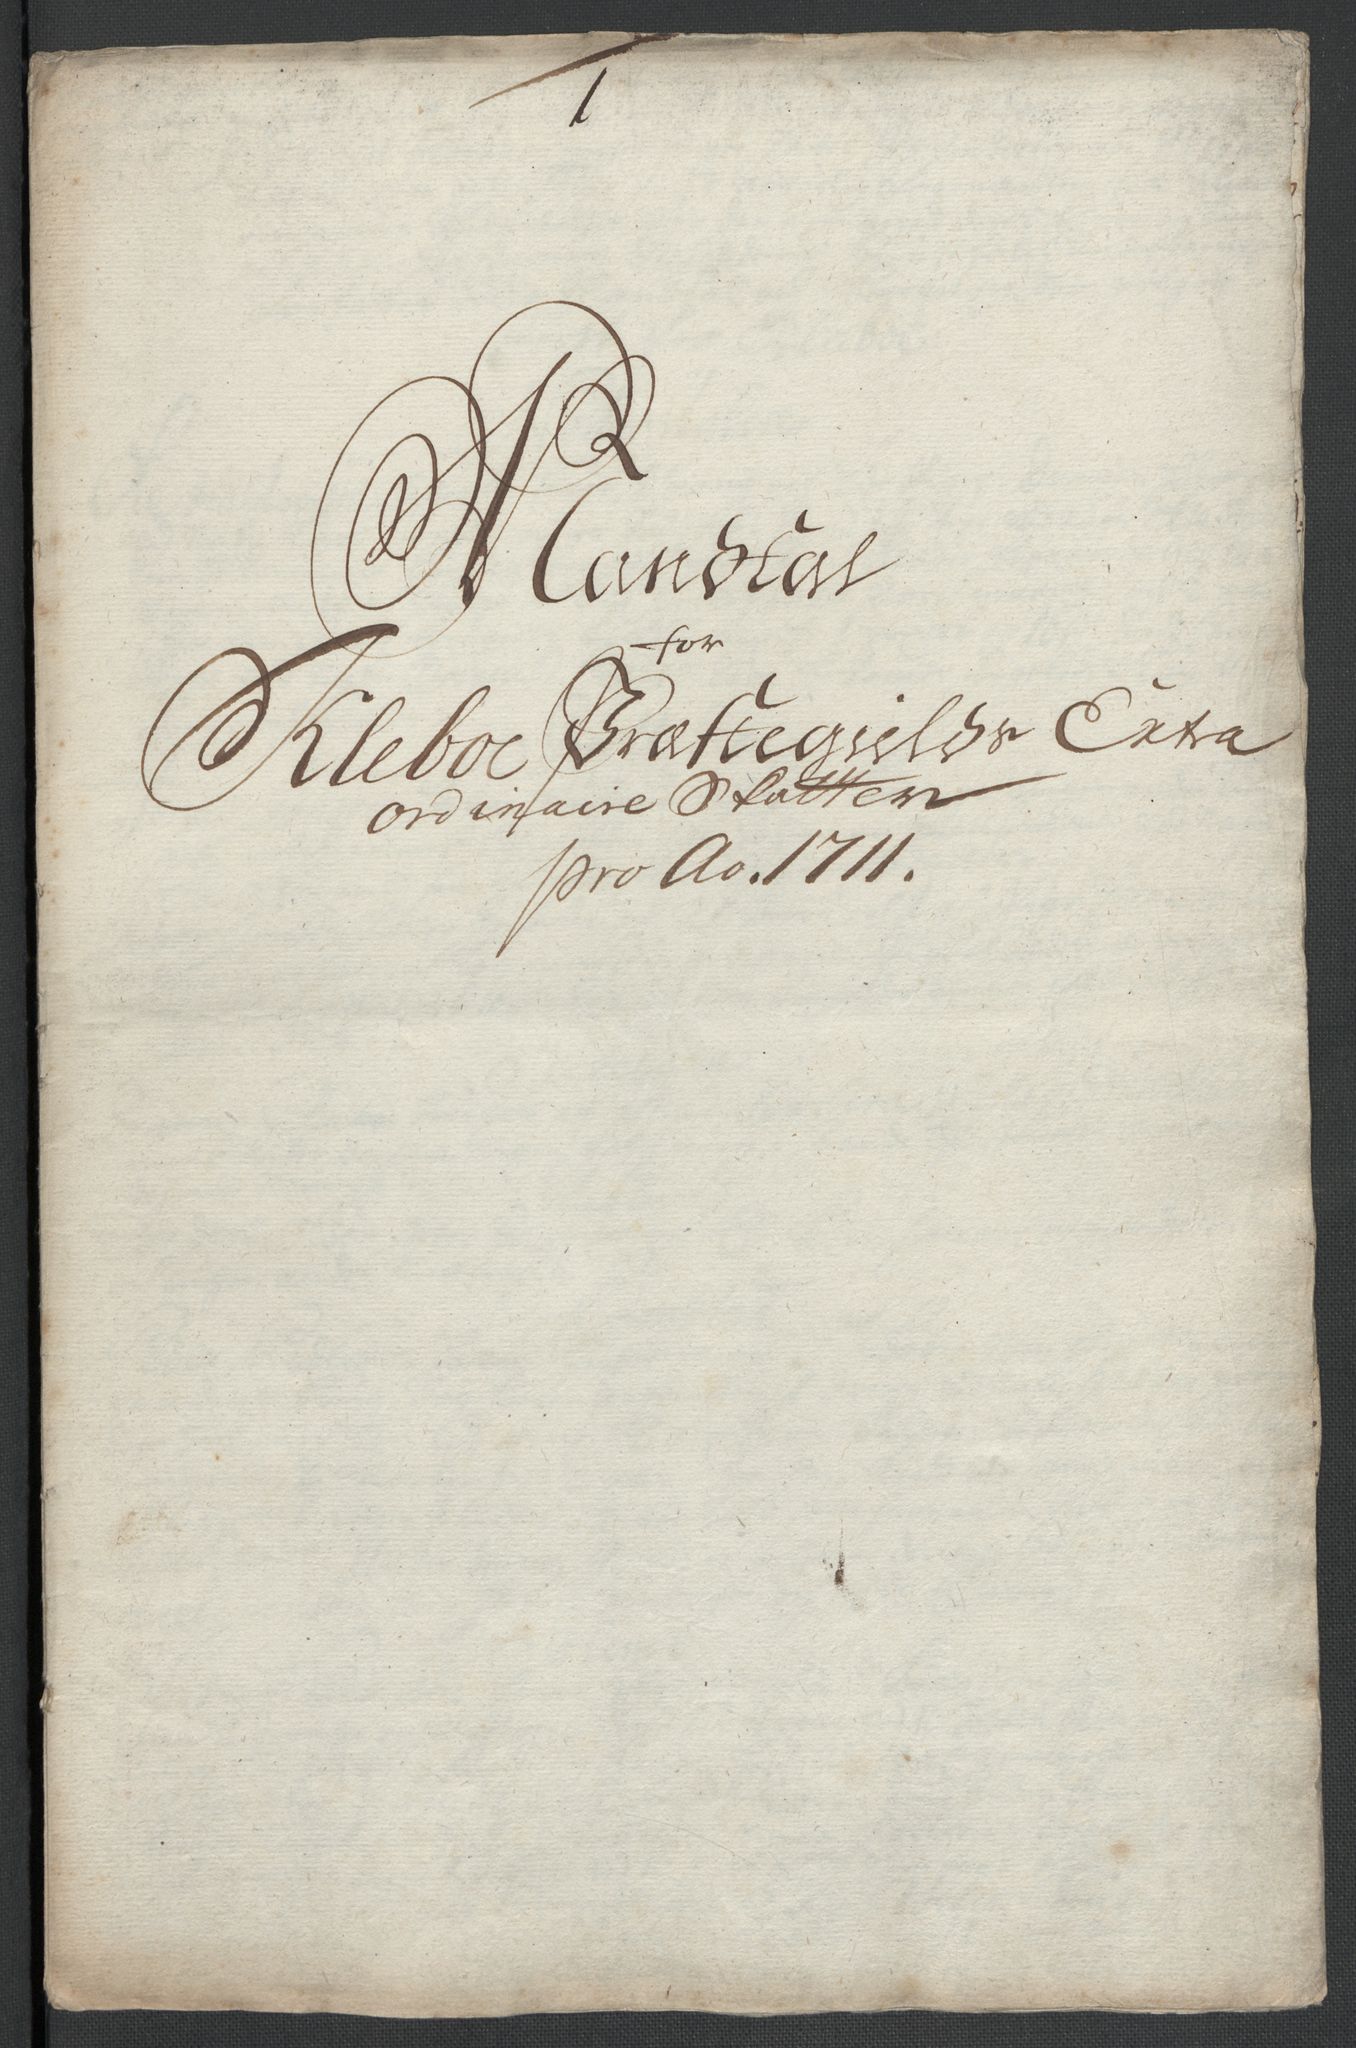 1
Mandtal
for
Kleboe Præstegields Extra
ordinaire Skatter
pro Ao. 1711.